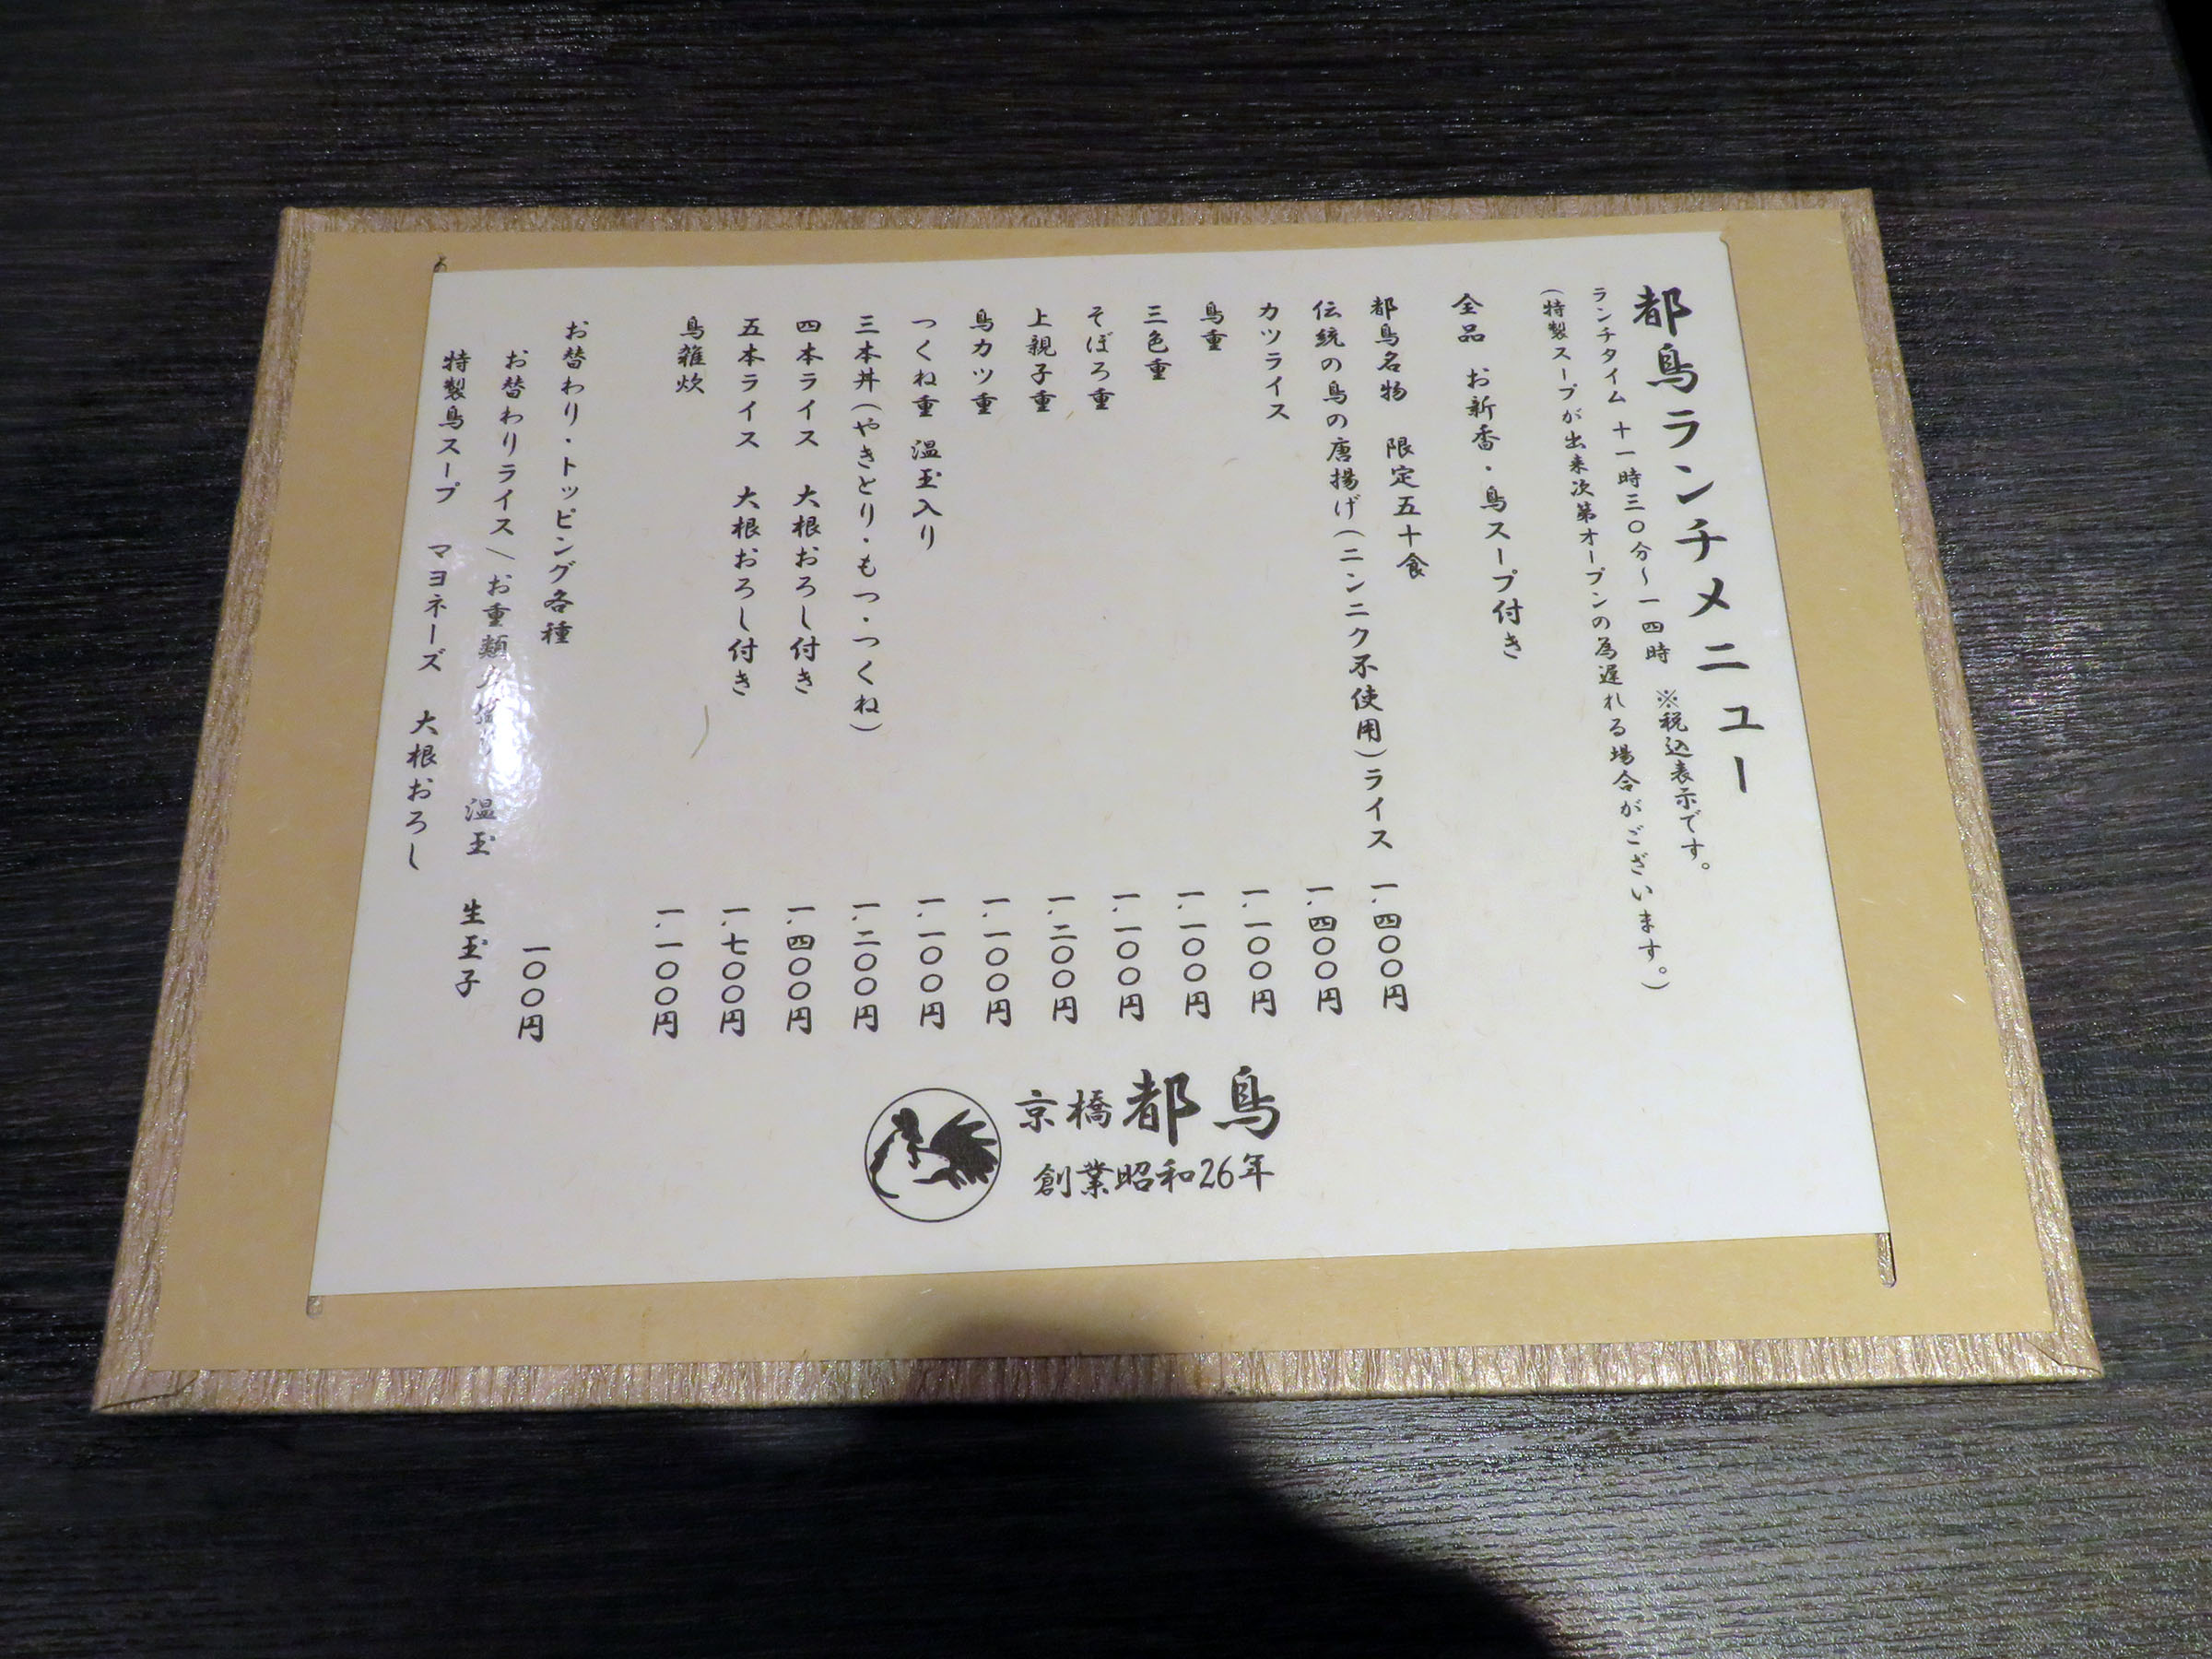 都鳥ランチメニュー
ランチタイム 十一時三〇分～一四時 ※税込表示です。
(特製スープが出来次第オープンの為遅れる場合がございます。)
全品 お新香・鳥スープ付き
都鳥名物 限定五十食
伝統の鳥の唐揚げ(ニンニク不使用)ライス 一.四〇〇円
カツライス 一.四〇〇円
鳥重 一.一〇〇円
三色重 一.一〇〇円
そぼろ重 一.一〇〇円
上親子重 一.二〇〇円
鳥カツ重 一.一〇〇円
つくね重 温玉入り 一.一〇〇円
三本丼(やきとり・もつ・つくね) 一.二〇〇円
四本ライス 大根おろし付き 一.四〇〇円
五本ライス 大根おろし付き 一.七〇〇円
鳥雑炊 一.一〇〇円
お替わり・トッピング各種 一〇〇円
お替わりライス\お重類 温玉 生玉子
特製鳥スープ マヨネーズ 大根おろし
京橋都鳥
創業昭和26年